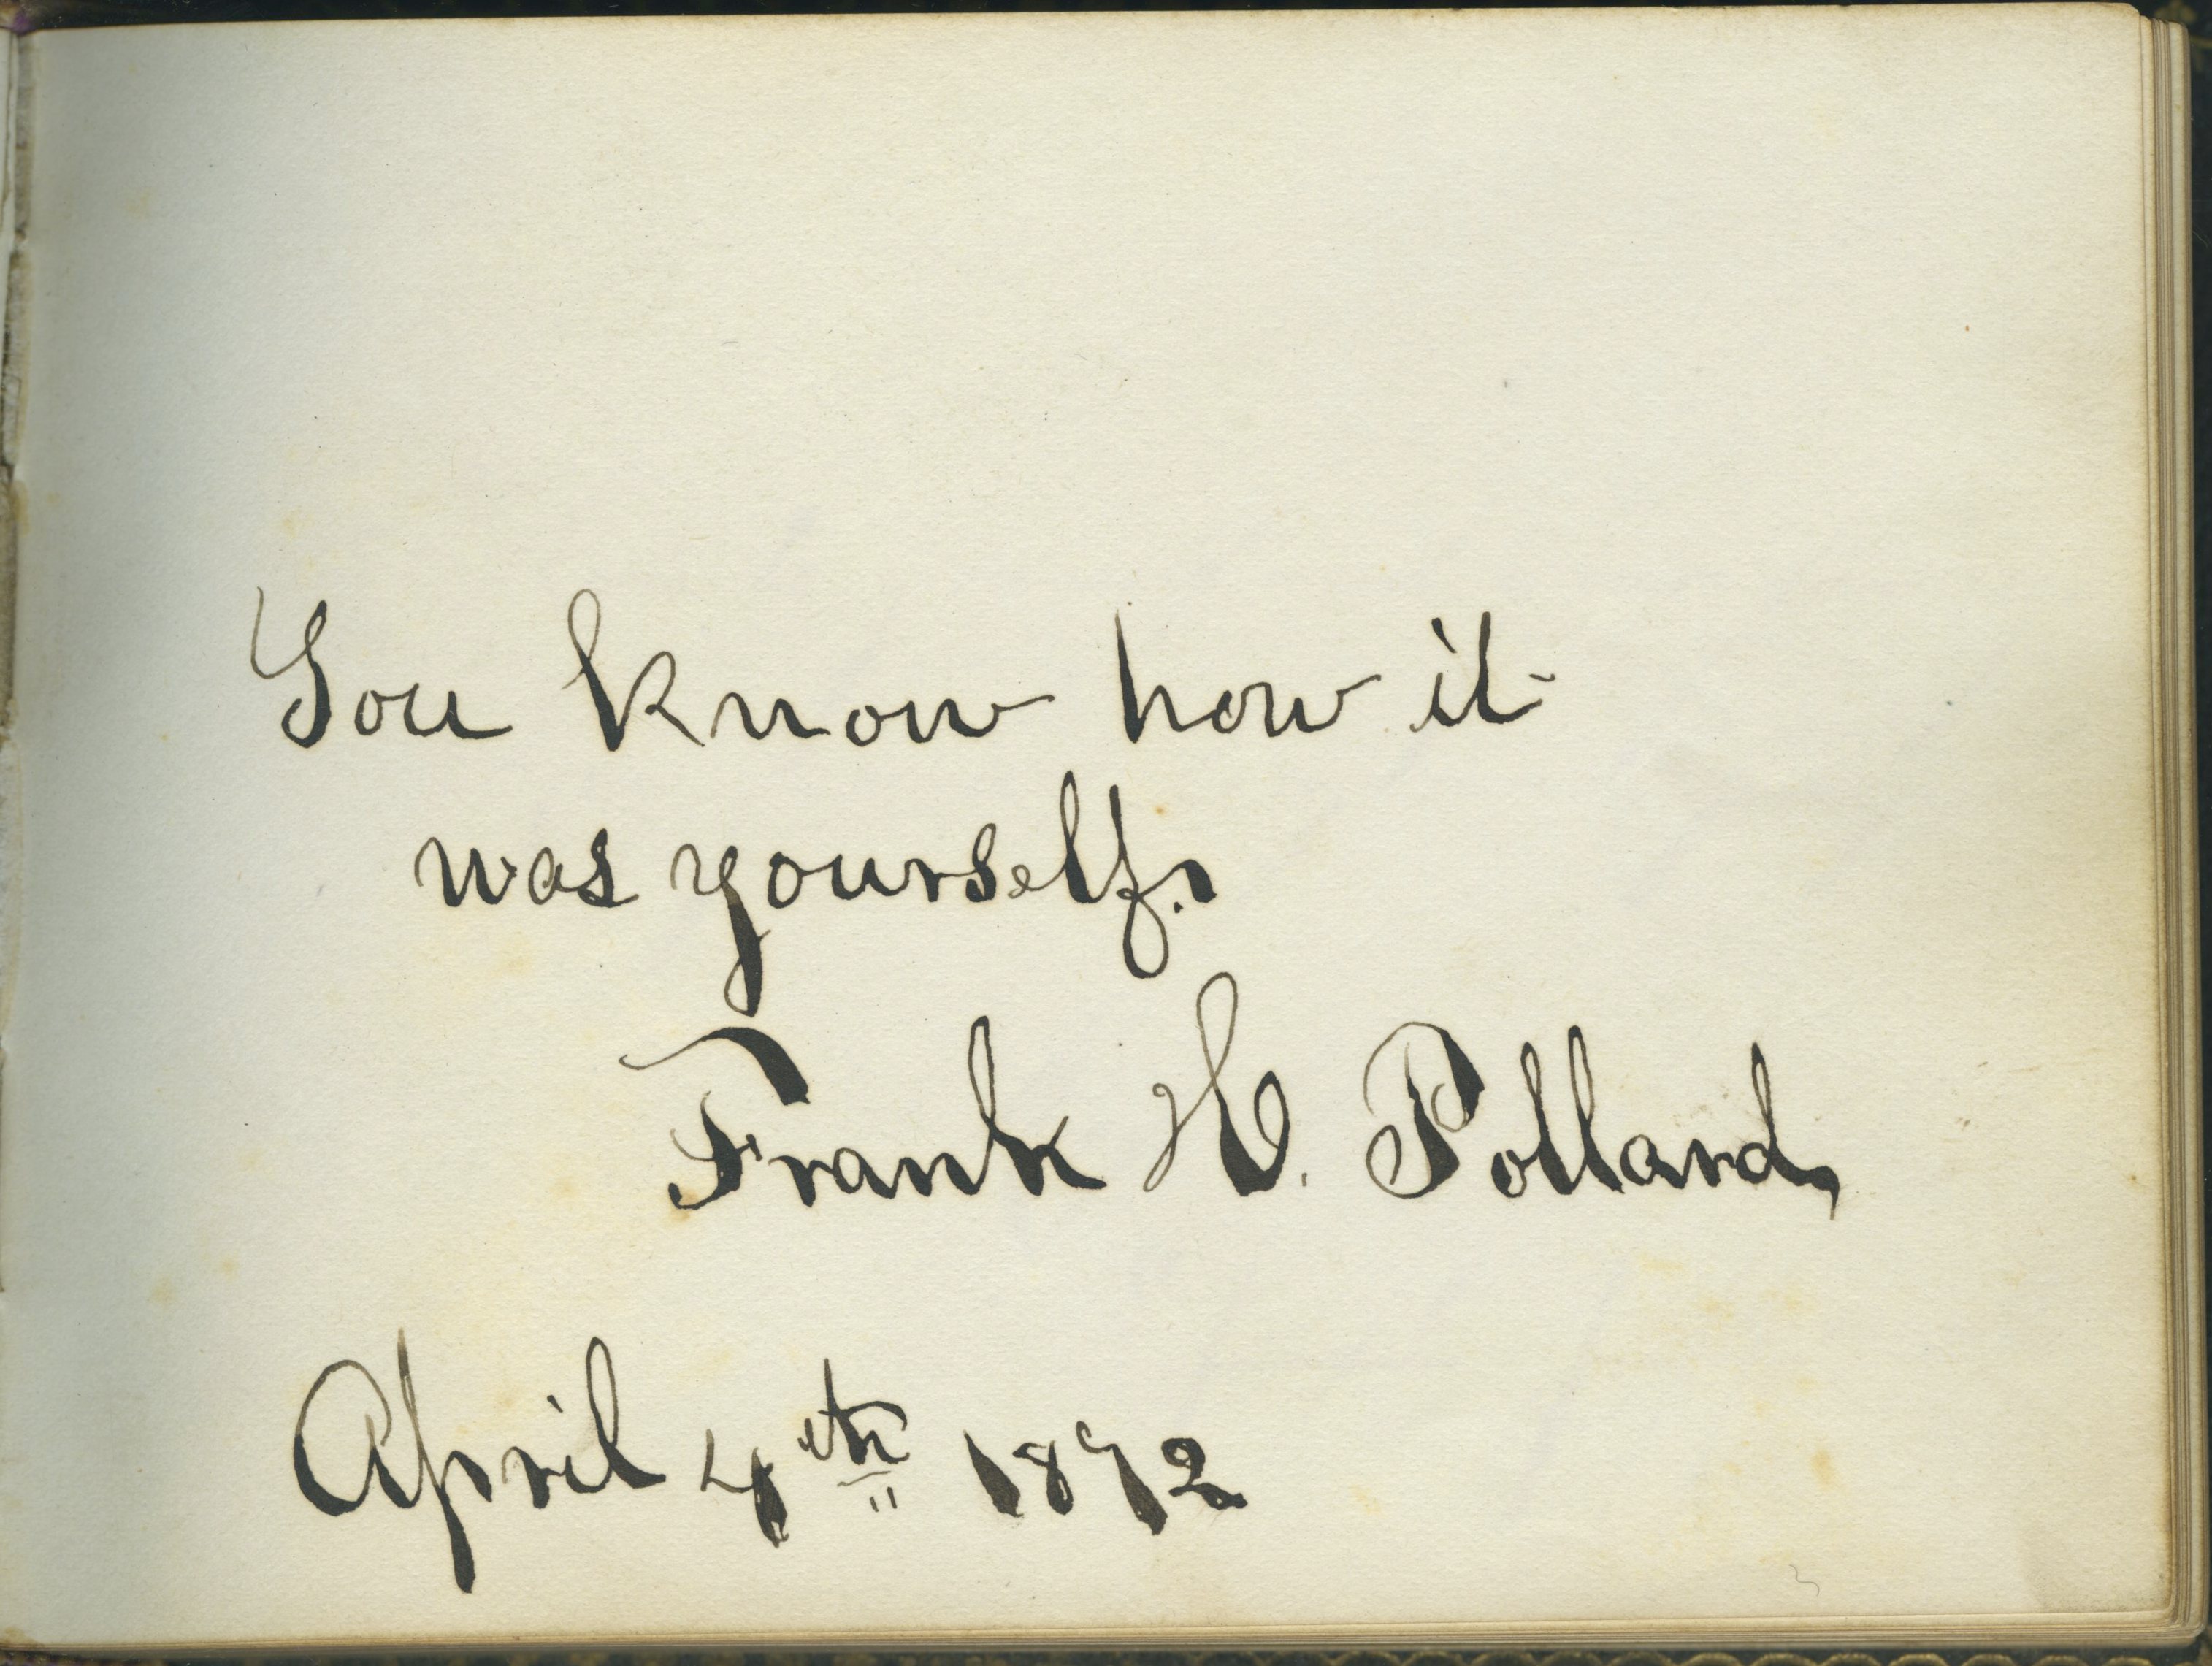 You know how it
was yourself.
Frank H. Pollard
April 4th 1872